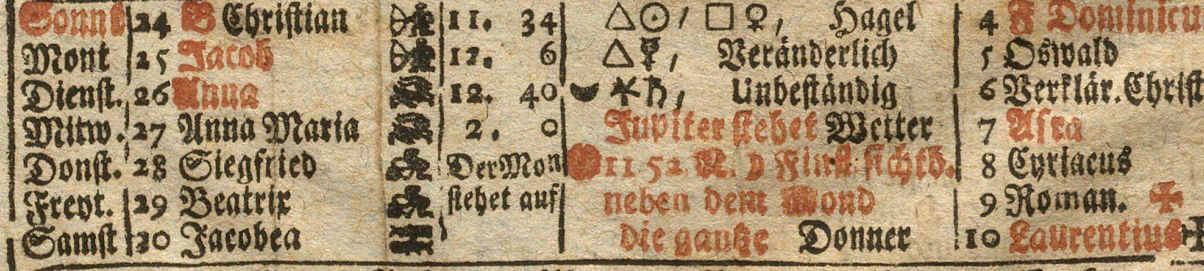 Sonnt 24 G Christian 11. 34 △☉, □♀, Hagel 4 F Dominicu
Mont 25 Jacob 12. 6 △☿, Veränderlich 5 Oswald
Dienst. 26 Anna 12. 40 ⚹♄, Unbeständig 6 Verklär. Christ
Mittw. 27 Anna Maria 2. 0 Jupiter stehet Wetter 7 Afra
Donst. 28 Siegfried Der Mon 11 52. N. ☽ Finst. sichtb. 8 Cyriacus
Freyt. 29 Beatrix stehet auf neben dem Mond 9 Roman. ✠
Samst 30 Jacobea die gantze Donner 10 Laurentius